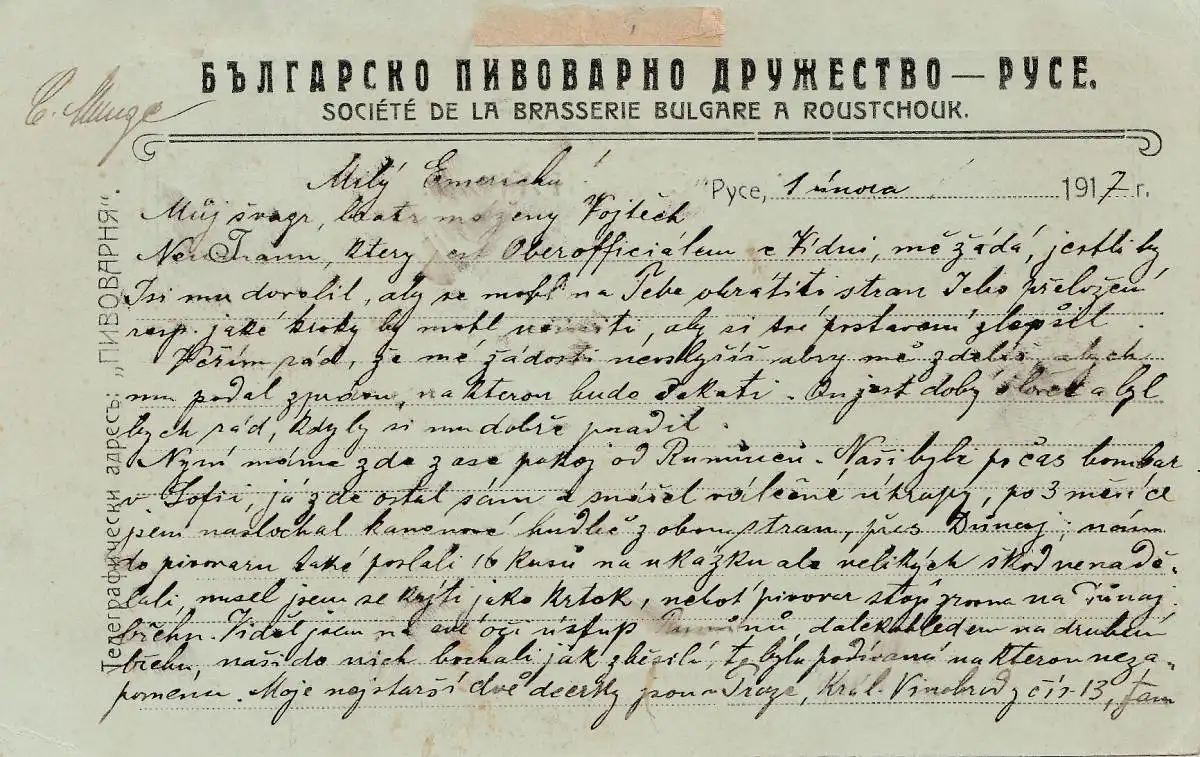 БЪЛГАРСКО ПИВОВАРНО ДРУЖЕСТВО — РУСЕ.
SOCIÉTÉ DE LA BRASSERIE BULGARE A ROUSTCHOUK.
Телеграфически адресъ: „ПИВОВАРНЯ".
Milý
Русе, 1 února 1917 г.
Můj švagr, bratr mé ženy Vojtěch
který jest Oberofficiálem ve Vídni, mě žádá, jestli by
Jsi mu dovolil, aby se mohl na Tebe obrátiti stran Jeho přeložení
resp. jaké kroky by mohl učiniti, aby si své postavení zlepšil.
Věřím rád, že mé žádosti a mě zdělíš, abych
mu podal zprávu, na kterou bude čekati. On jest dobý člověk a byl
bych rád, kdyby si mu dobře poradil.
Nyní máme zde zase pokoj od Rumunů. Naši byli po čas bombar.
v Sofii, já zde ostal sám a snášel válečné útrapy, po 3 měsíce
jsem naslochal kanonové hudbě z obou stran, přes Dunaj; nám
do pivovaru také poslali 16 kusů na ukázku ale velikých škod nenadě-
lali, musel jsem se krýti jako krtek, neboť pivovar stojí rovna na
břehu. Viděl jsem na své oči ústup dalekohledem na druhém
břehu, naši do nich bochali jak zběsilí, to byla podívaná na kterou neza-
pomenu. Moje nejstarší dvě dcerky jsou v Praze, Král. Vinohrady čís. 13, tam